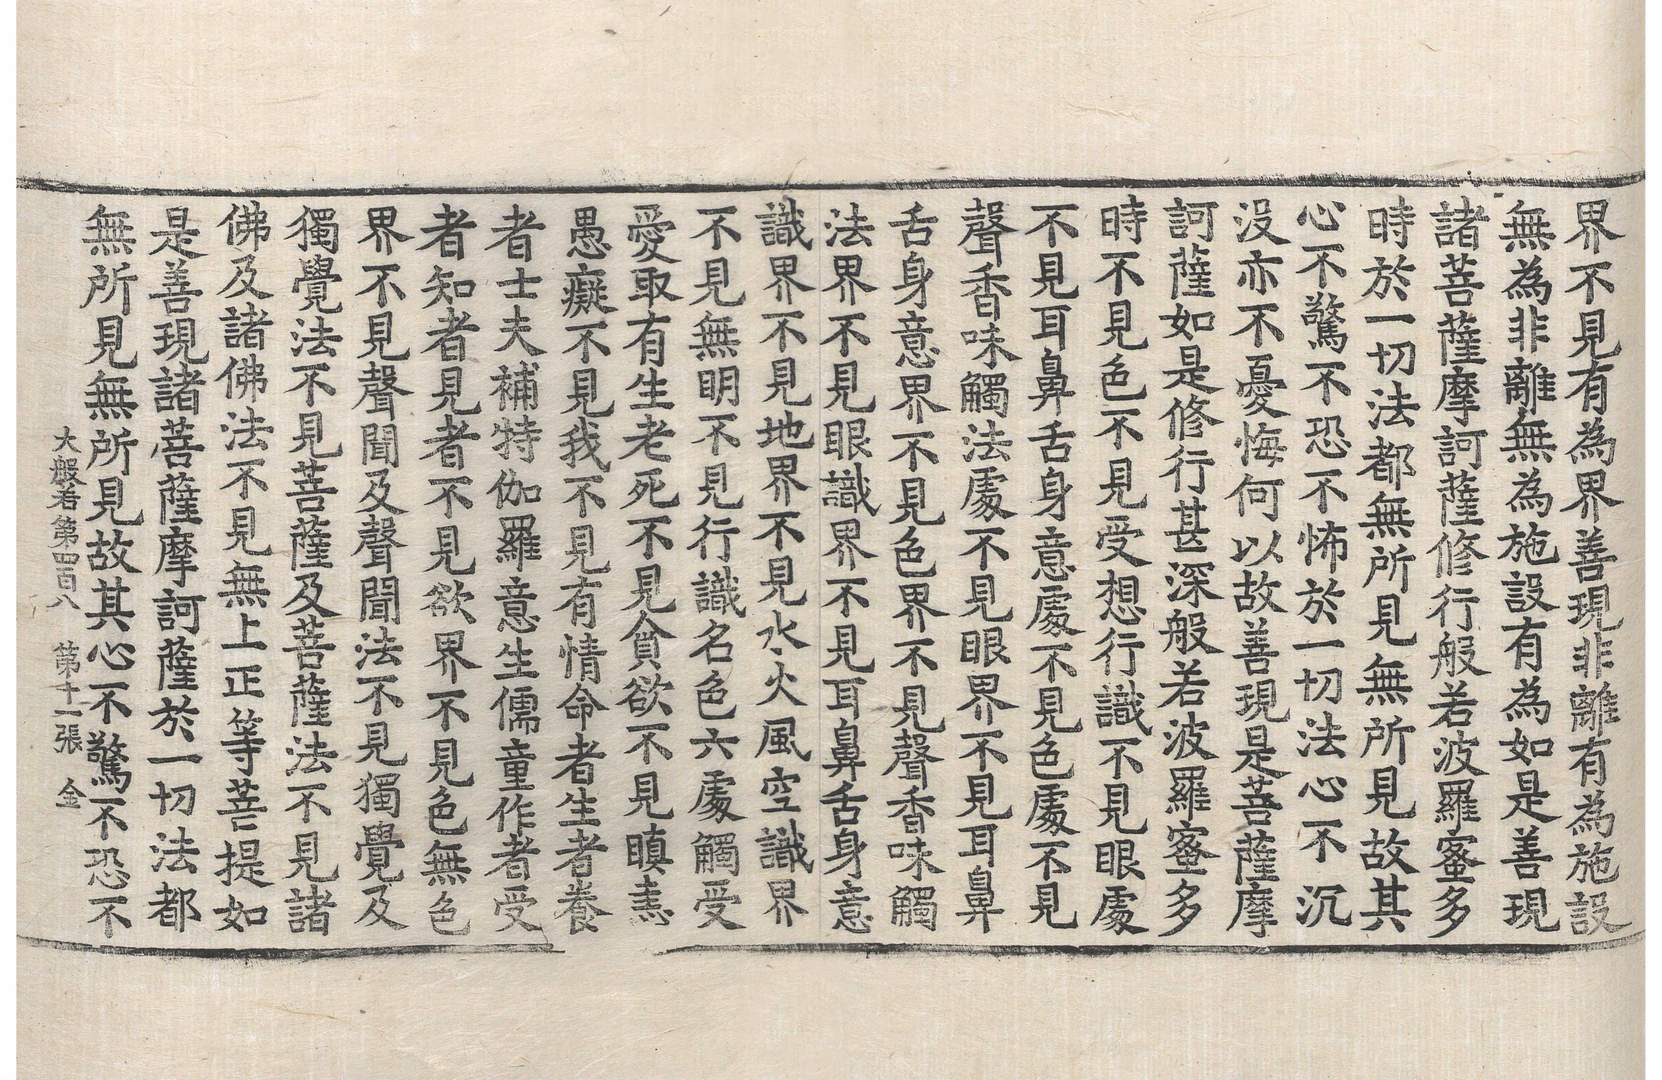 界不見有為界善現非離有為施設
無為非離無為施設有為如是善現
諸菩薩摩訶薩修行般若波羅蜜多
時於一切法都無所見無所見故其
心不驚不恐不怖於一切法心不沉
沒亦不憂悔何以故善現是菩薩摩
訶薩如是修行甚深般若波羅蜜多
時不見色不見受想行識不見眼處
不見耳鼻舌身意處不見色處不見
聲香味觸法處不見眼界不見耳鼻
舌身意界不見色界不見聲香味觸
法界不見眼識界不見耳鼻舌身意
識界不見地界不見水火風空識界
不見無明不見行識名色六處觸受
愛取有生老死不見貪欲不見瞋恚
愚癡不見我不見有情命者生者養
者士夫補特伽羅意生儒童作者受
者知者見者不見欲界不見色無色
界不見聲聞及聲聞法不見獨覺及
獨覺法不見菩薩及菩薩法不見諸
佛及諸佛法不見無上正等菩提如
是善現諸菩薩摩訶薩於一切法都
無所見無所見故其心不驚不恐不
大般若第四百八　第十二張　金